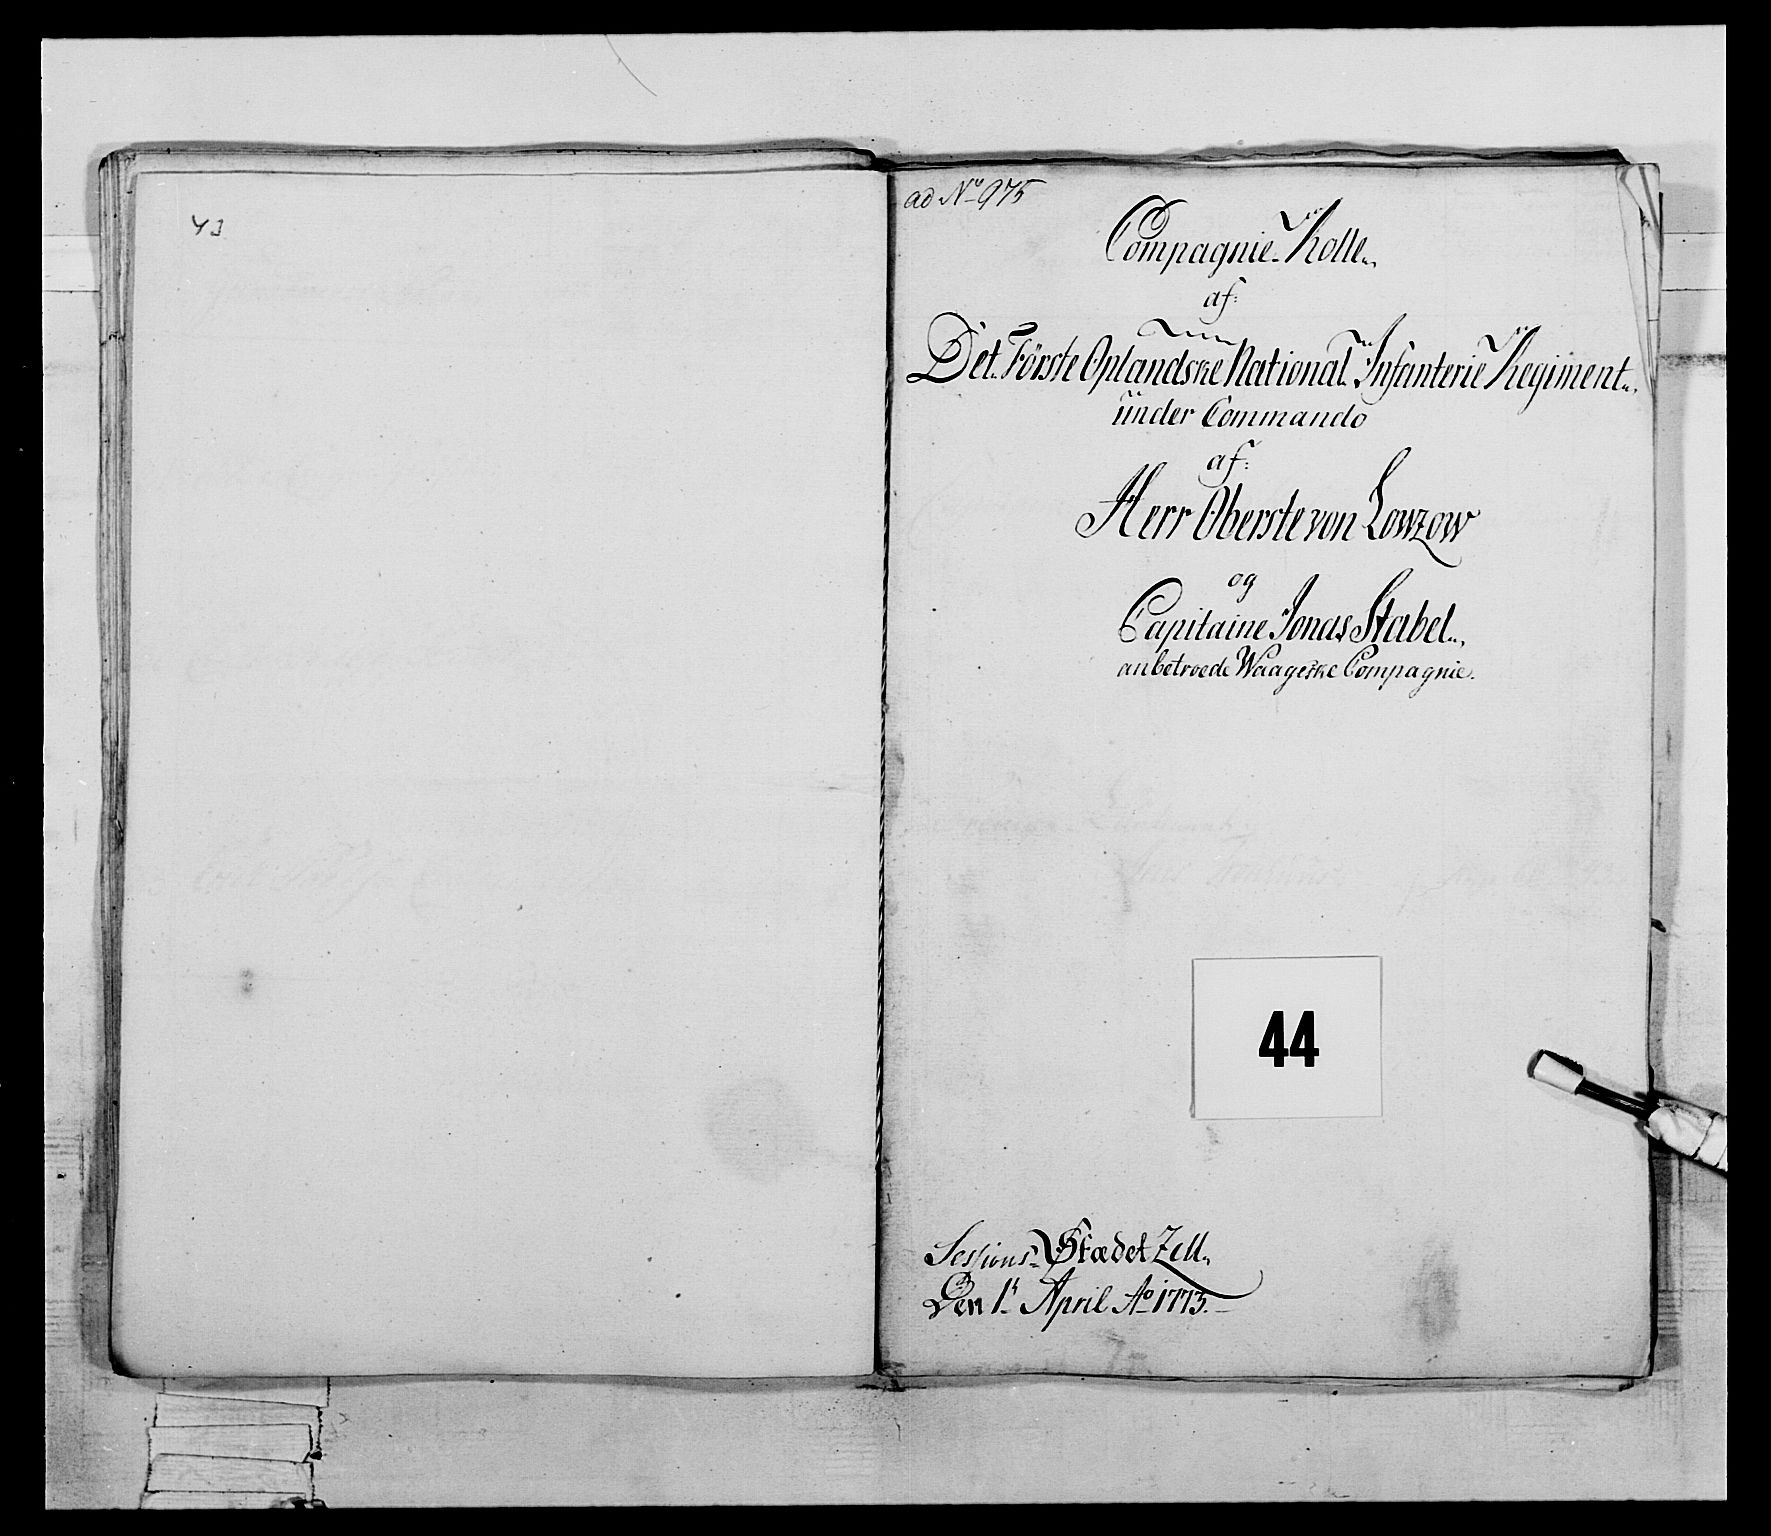 43
ad No 975
Compagnie-Rolle.,
af:
Det Förste Oplandske National Infanterie Regiment.,
ünder Commando
af:
Herr Oberste von Lowzow
og
Capitaine Jonas Stabel.,
anbetroede Waageske Compagnie.
44
Sessions-Stædet Zell.
Den 1t April Ao 1773.